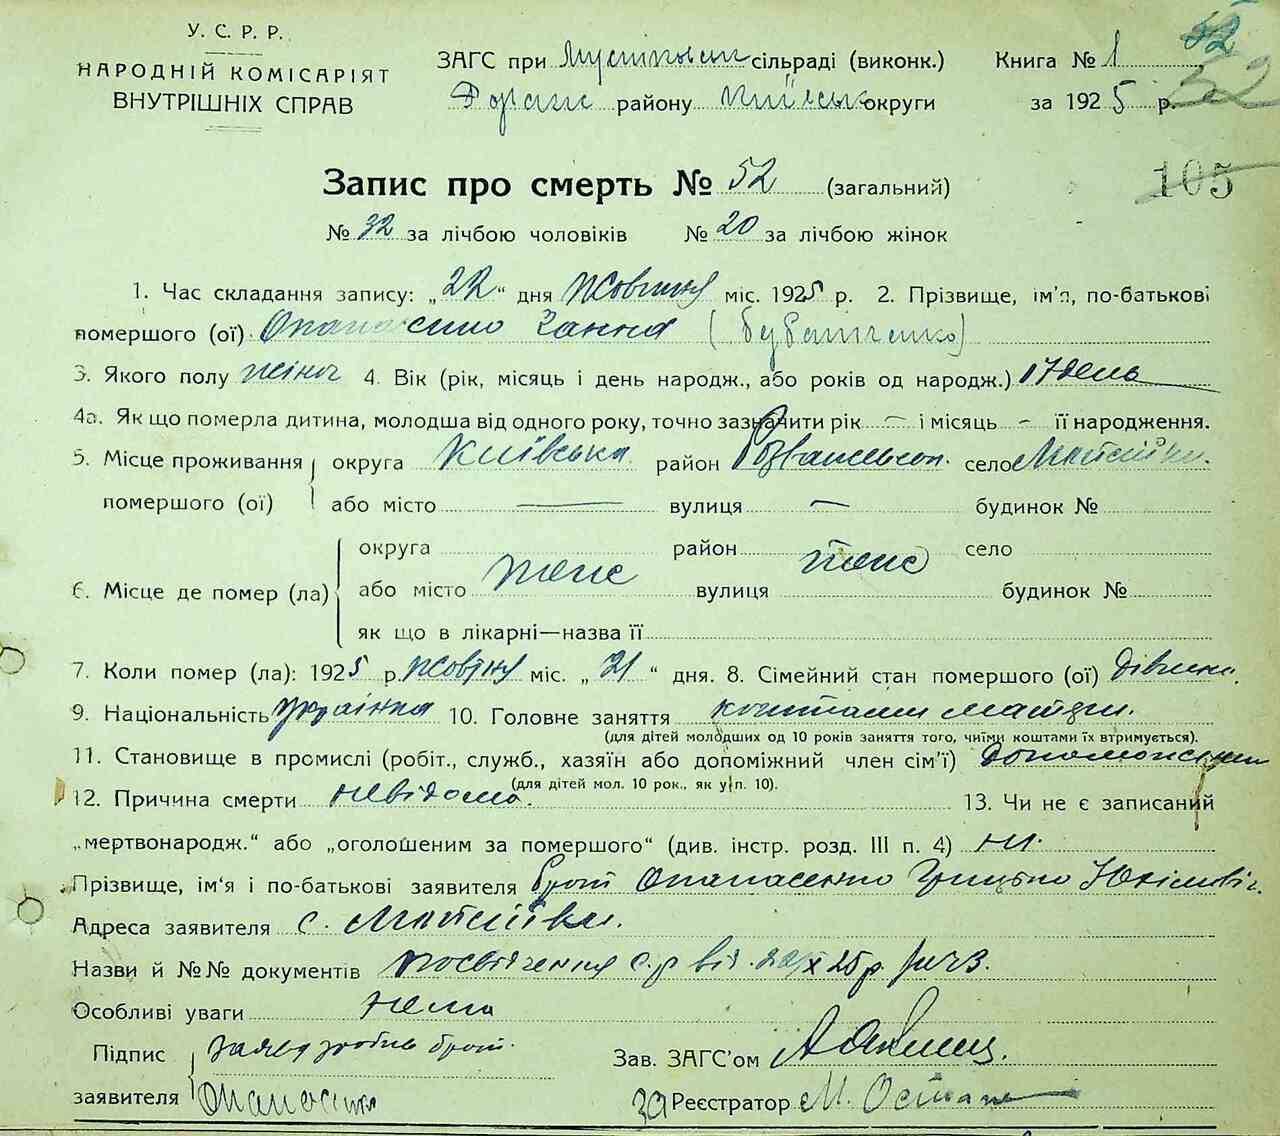 У. С. Р. Р.
НАРОДНІЙ КОМІСАРІЯТ
ВНУТРІШНІХ СПРАВ
ЗАГС при сільраді (виконк.)
району округи
Книга № 1
за 1925 р.
52
52
105
Запис про смерть № 52 (загальний)
№ 32 за лічбою чоловіків № 20 за лічбою жінок
1. Час складання запису: „22“ дня Жовтня міс. 1925 р. 2. Прізвище, ім'я, по-батькові
помершого (ої) Ганна
3. Якого полу жіноч 4. Вік (рік, місяць і день народж., або років од народж.) 17 день
4а. Як що померла дитина, молодша від одного року, точно зазначити рік — і місяць - її народження.
5. Місце проживання округа Київська район село
помершого (ої) або місто — вулиця — будинок №
6. Місце де помер (ла) округа район село
або місто теж вулиця теж будинок №
як що в лікарні—назва її
7. Коли помер (ла): 1925 р. Жовтня міс. „21“ дня. 8. Сімейний стан помершого (ої)
9. Національність українка 10. Головне заняття коштами матери.
(для дітей молодших од 10 років заняття того, чиїми коштами їх втримується).
11. Становище в промислі (робіт., служб., хазяїн або допоміжний член сім'ї)
(для дітей мол. 10 рок., як у п. 10).
12. Причина смерти невідома. 13. Чи не є записаний
„мертвонародж.“ або „оголошеним за помершого“ (див. інстр. розд. III п. 4) ні.
Прізвище, ім'я і по-батькові заявителя брат Опанасенко Грицько
Адреса заявителя с.
Назви й №№ документів посвідчення с.р від X 25 р.
Особливі уваги нема
Підпис заяву зробив брат
заявителя
Зав. ЗАГС'ом
за Реєстратор М.